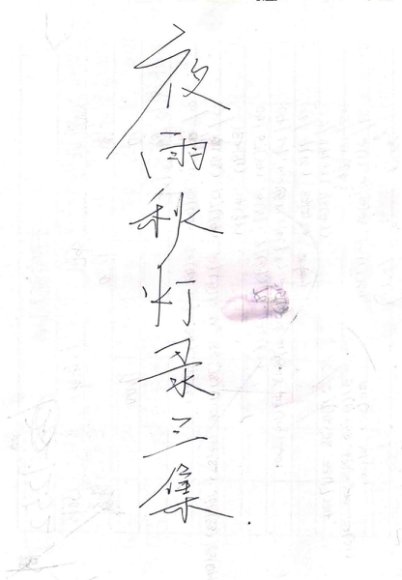 夜雨秋灯录三集.